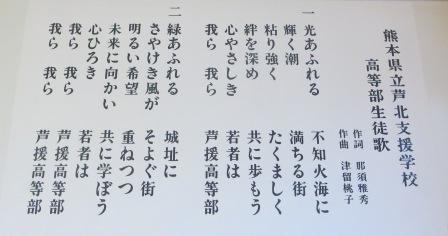 熊本県立芦北支援学校
高等部生徒歌
作詞 那須雅秀
作曲 津留桃子
一 光あふれる 不知火海に
輝く潮 満ちる街
粘り強く たくましく
絆を深め 共に歩もう
心やさしき 若者は
我ら 我ら 芦援高等部
二 緑あふれる 城址に
さやけき風が そよぐ街
明るい希望 重ねつつ
未来に向かい 共に学ぼう
心ひろき 若者は
我ら 我ら 芦援高等部
我ら 我ら 芦援高等部